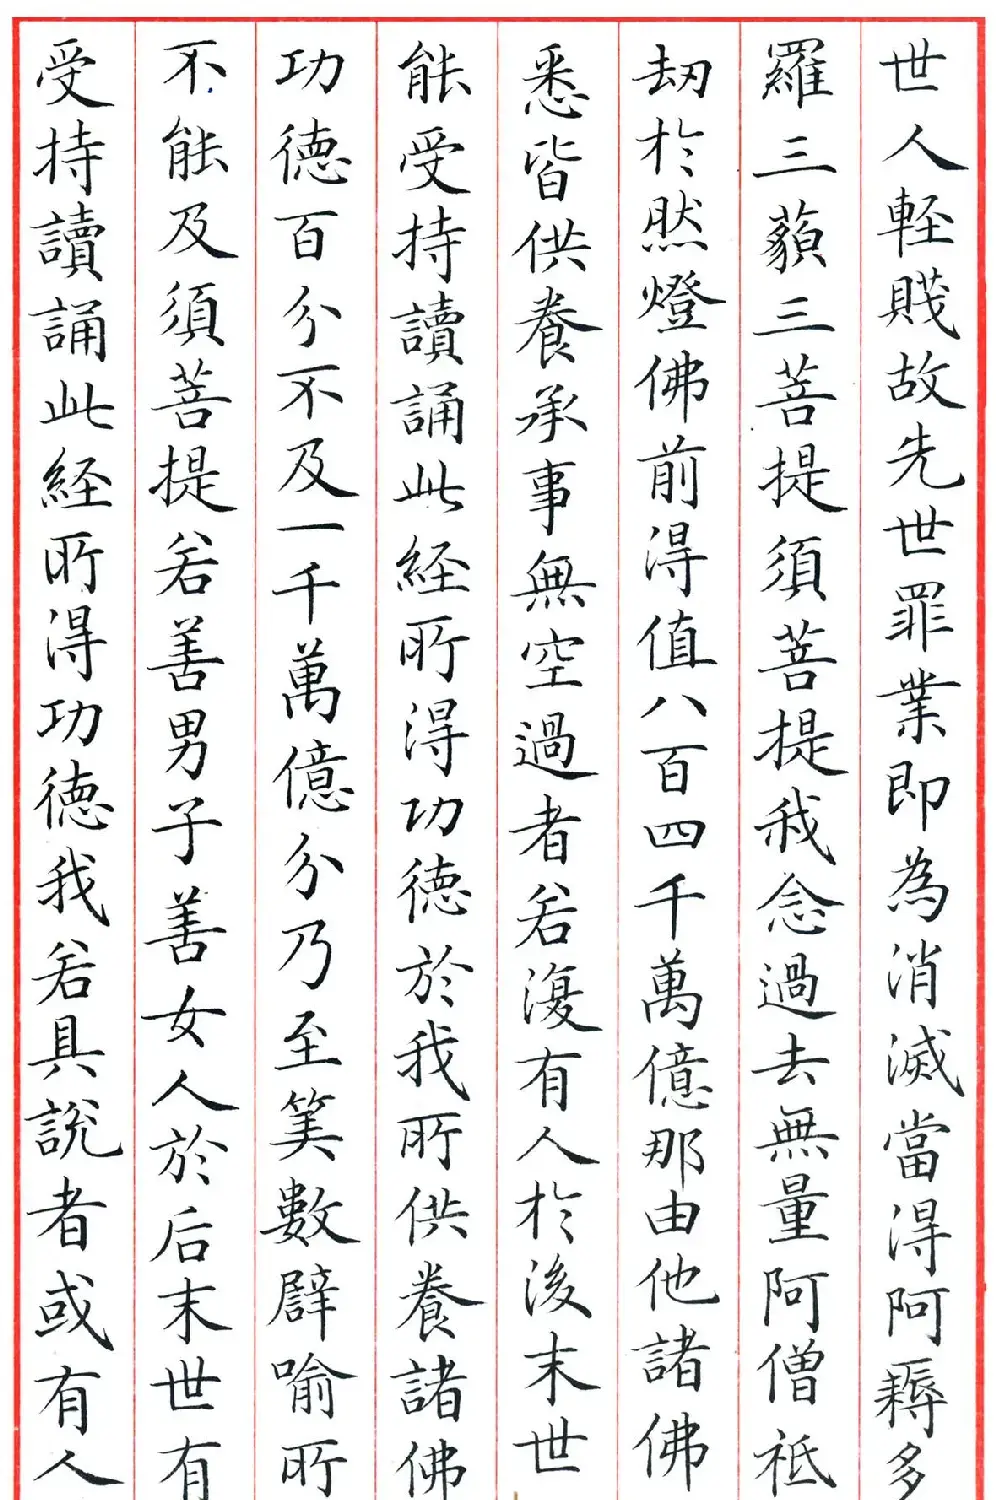 世人輕賤故先世罪業即為消滅當得阿耨多
羅三藐三菩提須菩提我念過去無量阿僧祇
劫於然燈佛前得值八百四千萬億那由他諸佛
悉皆供養承事無空過者若復有人於後末世
能受持讀誦此經所得功德於我所供養諸佛
功德百分不及一千萬億分乃至筭數譬喻所
不能及須菩提若善男子善女人於后末世有
受持讀誦此經所得功德我若具說者或有人